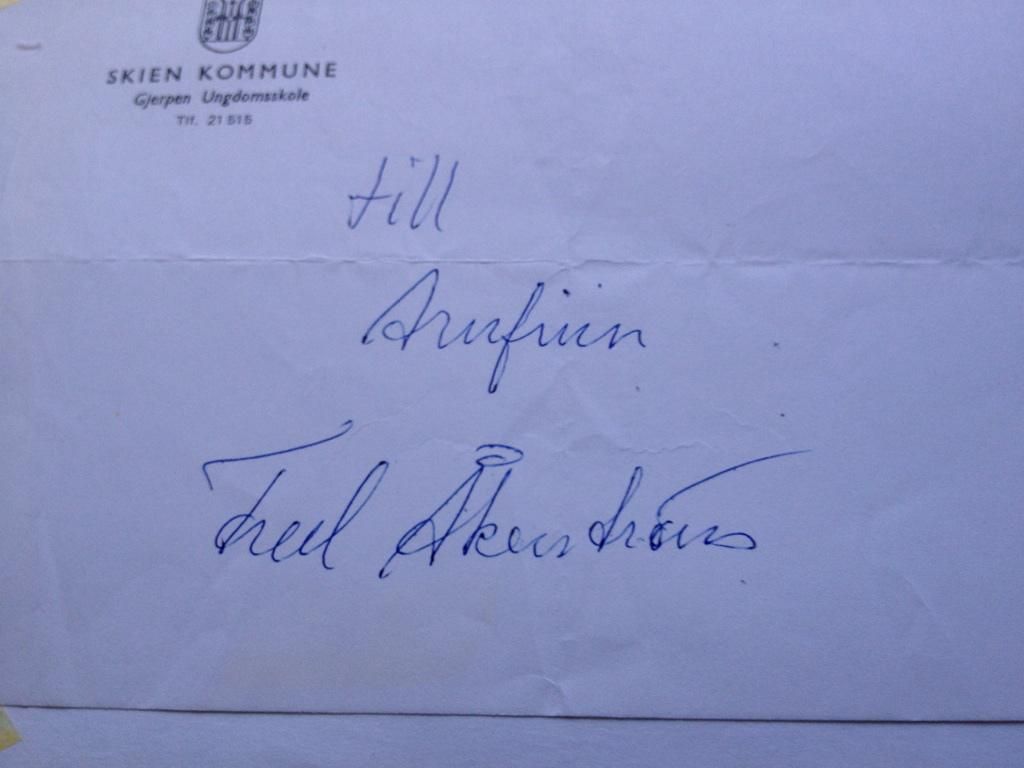 SKIEN KOMMUNE
Gjerpen Ungdomsskole
Tlf. 21 515
till
Arnfinn
Fred Åkerström